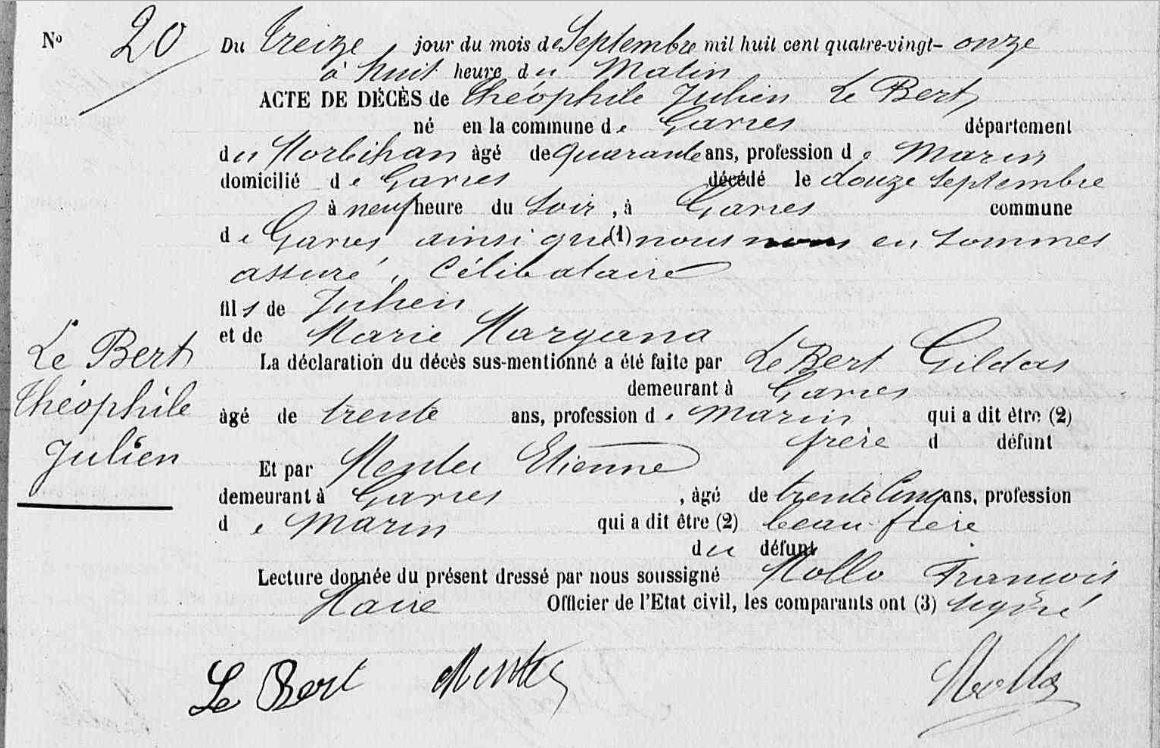 N° 20 Du treize jour du mois de Septembre mil huit cent quatre-vingt-onze
à huit heure du Matin
ACTE DE DÉCÈS de Théophile Julien Le Bert
né en la commune de Gavres département
du Morbihan âgé de quarante ans, profession de Marin
domicilié de Gavres décédé le douze Septembre
à neuf heure du Soir, à Gavres commune
de Gavres ainsi que (1) nous nous en sommes
assuré, Célibataire
fils de Julien
et de Marie
La déclaration du décès sus-mentionné a été faite par Le Bert Gildas
demeurant à Gavres
âgé de trente ans, profession de Marin qui a dit être (2)
frère d défunt
Et par Etienne
demeurant à Gavres, âgé de trente Cinq ans, profession
de Marin qui a dit être (2) beau-frère
du défunt
Lecture donnée du présent dressé par nous soussigné Mollo François
Maire Officier de l'Etat civil, les comparants ont (3) signé
Le Bert
Théophile
Julien
Le Bert Mollo